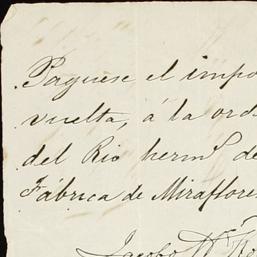 Paguese el impo
vuelta, á la ord
del Rio herm.º de
Fábrica de Miraflore
Jacobo